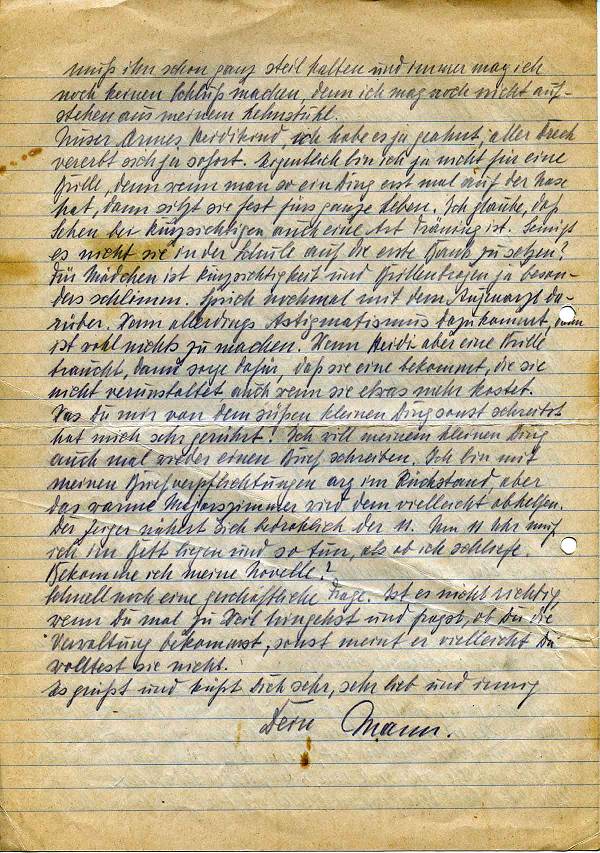 muß ihn schon ganz steil halten und immer mag ich
noch keinen Schluß machen, denn ich mag noch nicht auf-
stehen aus meinem Lehnstuhl.
Unser Armes Heidikind, ich habe es ja geahnt, aller Dreck
vererbt sich ja sofort. Eigentlich bin ich ja nicht für eine
Brille, denn wenn man so ein Ding erst mal auf der Nase
hat, dann sitzt sie fest fürs ganze Leben. Ich glaube, daß
Sehen bei Kurzsichtigen auch eine Art Träning ist. Genügt
es nicht sie in der Schule auf die erste Bank zu setzen?
Für Mädchen ist Kurzsichtigkeit und Brillentragen ja beson-
ders schlimm. Sprich nochmal mit dem Augenarzt da-
rüber. Wenn allerdings Astigmatismus dazukommt, dann
ist wohl nichts zu machen. Wenn Heidi aber eine Brille
braucht, dann sorge dafür, daß sie eine bekommt, die sie
nicht verunstaltet auch wenn sie etwas mehr kostet.
Was du mir von dem süßen kleinen Ding sonst schreibst
hat mich sehr gerührt! Ich will meinem kleinen Ding
auch mal wieder einen Brief schreiben. Ich bin mit
meinen Briefverpflichtungen arg im Rückstand, aber
das warme Majorszimmer wird dem vielleicht abhelfen.
Der Zeiger nähert sich bedrohlich der 11. Um 11 Uhr muß
ich im Bett liegen und so tun, als ob ich schliefe.
Bekomme ich meine Novelle?
Schnell noch eine geschäftliche Frage. Ist es nicht richtig,
wenn Du mal zu Weil hingehst und fragst, ob Du die
Verwaltung bekommst, sonst meint er vielleicht Du
wolltest sie nicht.
Es grüßt und küßt Dich sehr, sehr lieb und innig
Dein Mann.